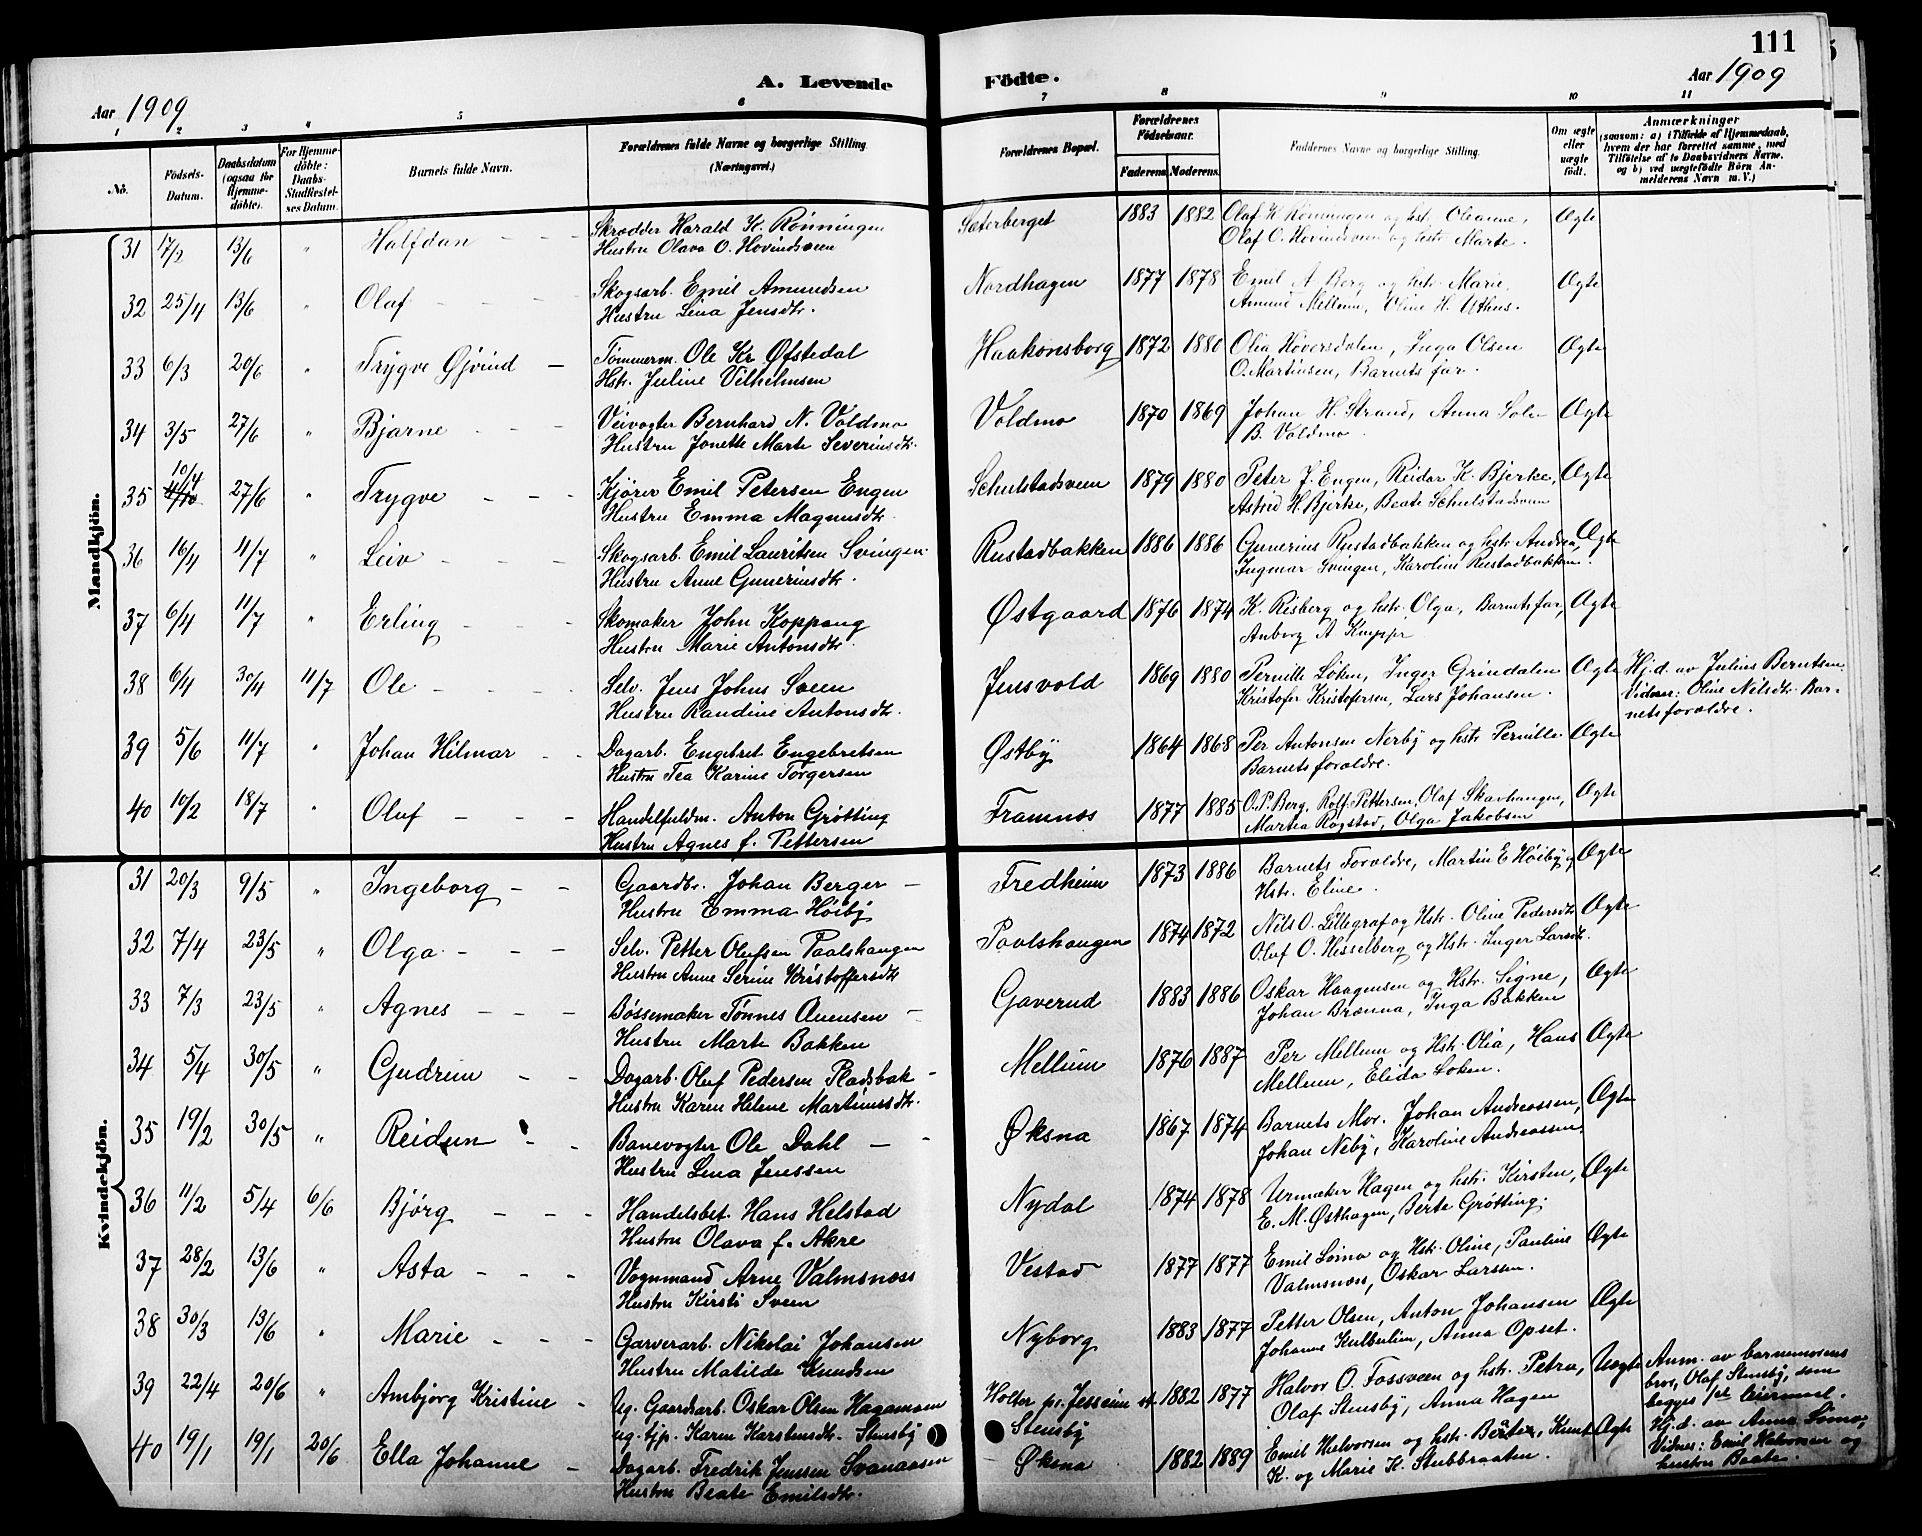 111
A. Levende Födte.
Aar 1909
Aar 1909
1 2 3 4 5 6 7 8 9 10 11
No.
Födsels-Datum.
Daabsdatum (ogsaa for Hjemme-döbte).
For Hjemme-döbte: Daabs-Stadfæstel-ses Datum.
Barnets fulde Navn.
Forældrenes fulde Navne og borgerlige Stilling.
(Næringsvei.)
Forældrenes Bopæl.
Forældrenes Födselsaar.
Faderens. Moderens.
Faddernes Navne og borgerlige Stilling.
Om ægte eller uægte födt.
Anmærkninger
(saasom: a) i Tilfælde af Hjemmedaab, hvem der har forrettet samme, med Tilföielse af to Daabsvidners Navne, og b) ved uægtefödte Börn Anmelderens Navn m. V.)
Mandkjön.
31 17/2 13/6 " Halfdan - - - Skrædder Harald K. Rønningen Sæterberget 1883 1882 Olaf K. Rønningen og hst. Oleanne, Ægte
Hustru Olava O. Hovindsveen Olaf O. Hovindsveen og hstr. Marte.
32 25/4 13/6 " Olaf - - - Skogsarb. Emil Amundsen Nordhagen 1877 1878 Emil A Berg og hstr. Marie, Ægte
Hustru Lina Jensdtr. Amund Mellum, Oline H. Uthus.
33 6/3 20/6 " Trygve Øjvind - Tømmerm. Ole Kr Øfstedal Haakonsborg 1872 1880 Olia Hoversdalen, Inga Olsen Ægte
Hstr. Juline Vilhelmsen O. Martinsen, Barnets far.
34 3/5 27/6 " Bjarne - - - Veivogter Bernhard N. Voldmo Voldmo 1870 1869 Johan H. Strand, Anna Ægte
Hustru Jonette Marte Severinsdtr. B. Voldmo
35 10/4 27/6 " Trygve - - - Kjører Emil Petersen Engen Schulstadsveen 1879 1880 Peter J. Engen, Reidar K. Bjerke, Ægte
Hustru Emma Magnusdtr. Astrid H. Bjerke, Beate Schulstadsveen
36 16/4 11/7 " Leiv - - - Skogsarb. Emil Lauritsen Svingen Rustadbakken 1886 1886 Gunerius Rustadbakken og hstr Andrea, Ægte
Hustru Anne Gunerinsdtr. Ingmar Svingen, Karoline Rustadbakken.
37 6/4 11/7 " Erling - - - Skomaker John Koppang Østgaard 1876 1874 K. Risberg og hstr. Olga, Barnets far, Ægte
Hustru Marie Antonsdtr. A
38 6/4 30/4 11/7 Ole - - - Selv. Jens Johns Sveen Jensvold 1869 1880 Pernille Løken, Inger Grindalen Ægte Hj.d. av Julius Berntsen
Hustru Randine Antonsdtr. Kristofer Kristofersen, Lars Johansen. Vidner: Oline Nilsdtr. Bar-
nets forældre.
39 5/6 11/7 " Johan Hilmar - - Dagarb. Engebret Engebretsen Østby 1864 1868 Per Antonsen Nerby og hstr Pernille Ægte
Hustru Tea Karine Torgersen Barnets forældre.
40 10/2 18/7 " Oluf - - - Handelsfuldm. Anton Grøtting Framnæs 1877 1885 O. P. Berg, Rolf Pettersen, Olaf Skavhaugen, Ægte
Hustru Agnes f. Pettersen Martha Rogstad, Olga Jakobsen
Kvindekjön.
31 20/3 9/5 " Ingeborg - - Gaardbr. Johan Berger - Fredheim 1873 1886 Barnets Forældre, Martin E Høiby og Ægte
Hustru Emma Høiby Hstr. Eline.
32 7/4 23/5 " Olga - - - Selv. Petter Olufsen Paalshaugen Paalshaugen 1874 1872 Nils O. Lillegraf og Hstr. Oline Pedersdtr Ægte
Hustru Anne Serine Kristoffersdtr Oluf O. Hesselberg og Hstr. Inger Larsdtr.
33 7/3 23/5 " Agnes - - - Bøssemaker Tønnes Auensen - Gaverud 1883 1886 Oskar Haagensen og Hstr. Signe, Ægte
Hustru Marte Bakken Johan Brænna, Inga Bakken
34 5/4 30/5 " Gudrun - - Dagarb. Oluf Pedersen Pladsbak - Mellum 1876 1887 Per Mellum og Hstr. Olia, Hans Ægte
Hustru Karen Helene Martinusdtr. Mellum, Elida Løken.
35 19/2 30/5 " Reidun - - Banevogter Ole Dahl - - Øksna 1867 1874 Barnets Mor. Johan Andreassen, Ægte
Hustru Lina Jenssen Johan Neby, Karoline Andreassen
36 11/2 5/4 6/6 Bjørg - - - Handelsbet. Hans Helstad Nydal 1874 1878 Urmaker Hagen og hstr. Kirsten, Ægte
Hustru Olava f. Akre E. M. Østhagen, Berte Grøtting.
37 28/2 13/6 " Asta - - - Vognmand Arne Valmsnæss Vestad 1877 1877 Emil Lømo og Hstr. Oline, Pauline Ægte
Hustru Kirsti Sveen Valmsnæs, Oskar Larsen.
38 30/3 13/6 " Marie - - - Garverarb. Nikolai Johansen Nyborg 1883 1877 Petter Olsen, Anton Johansen Ægte
Hustru Matilde Knudsen Johanne Kulberlien, Anna Opset.
39 22/4 20/6 " Ambjørg Kristine - Ug. Gaardsarb. Oskar Olsen Hagamoen Holter pr. Jessheim st. 1882 1877 Halvor O. Fossveen og hstr. Petra, Uægte Anm. av barnemorens
ug. tjp. Karen Karstensdtr. Stensby Stensby Olaf Stensby, Anna Hagen bror, Olaf Stensby, som
begges 1ste leiermaal.
40 19/1 19/1 20/6 Ella Johanne - Dagarb. Fredrik Jenssen Svanaasen Øksna 1882 1889 Emil Halvorsen og hstr. Berte, Knut Ægte Hj.d. av Anna Lømo,
Hustru Beate Emilsdtr. K. og Marie K. Stubbraaten. Vidner: Emil Halvorsen og
hustru Beate.